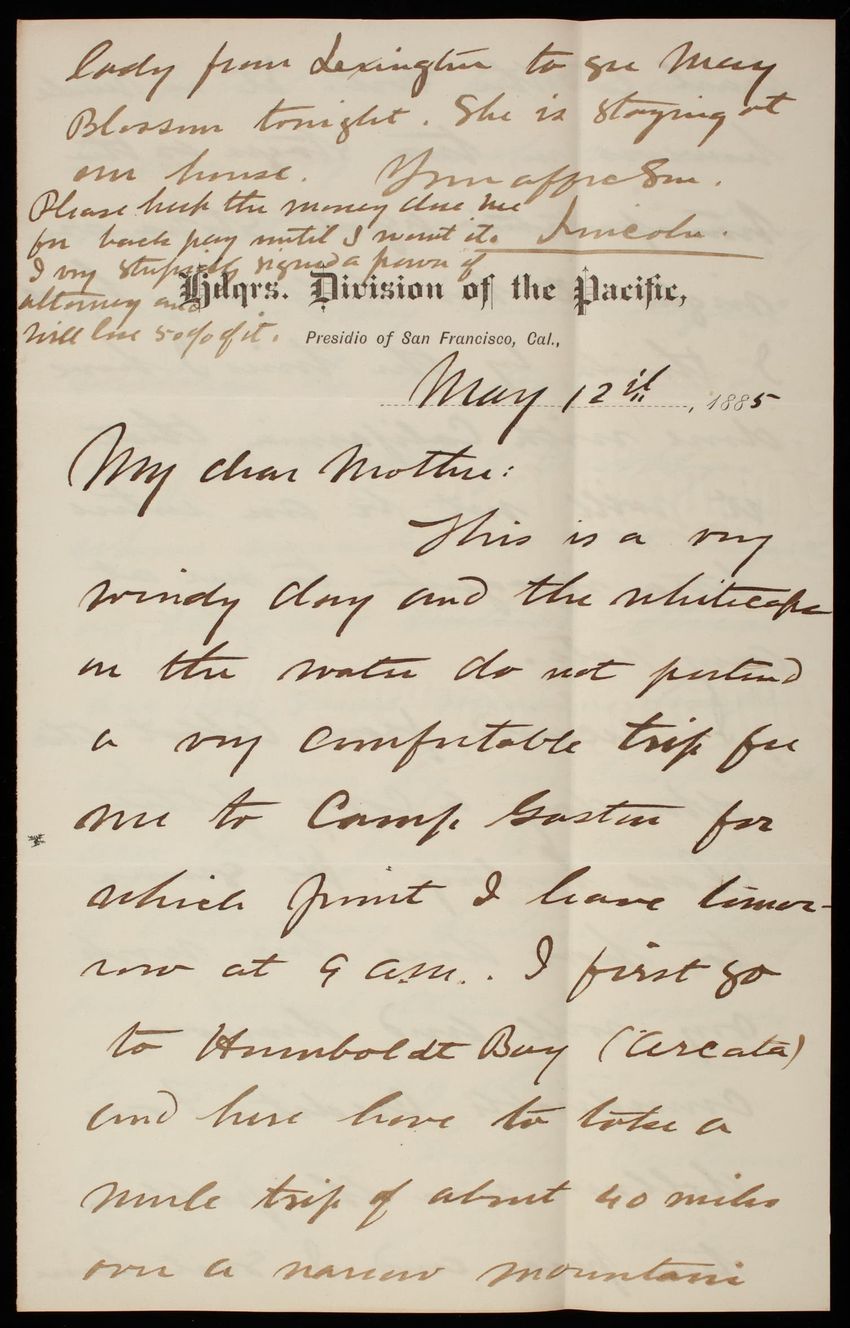 lady from Lexington to see May
Blossom tonight. She is staying at
our house. Your affte Son.
Lincoln.
Please keep the money due me
for back pay until I want it.
I very stupidly signed a power of
attorney and
will lose 50% of it.
Hdqrs. Division of the Pacific,
Presidio of San Francisco, Cal.,
May 12th, 1885
My dear Mother:
This is a very
windy day and the whitecaps
on the water do not portend
a very comfortable trip for
me to Camp Gaston for
which point I leave tomor-
row at 9 a.m. . I first go
to Humboldt Bay (Arcata)
and here have to take a
mule trip of about 40 miles
over a narrow mountain